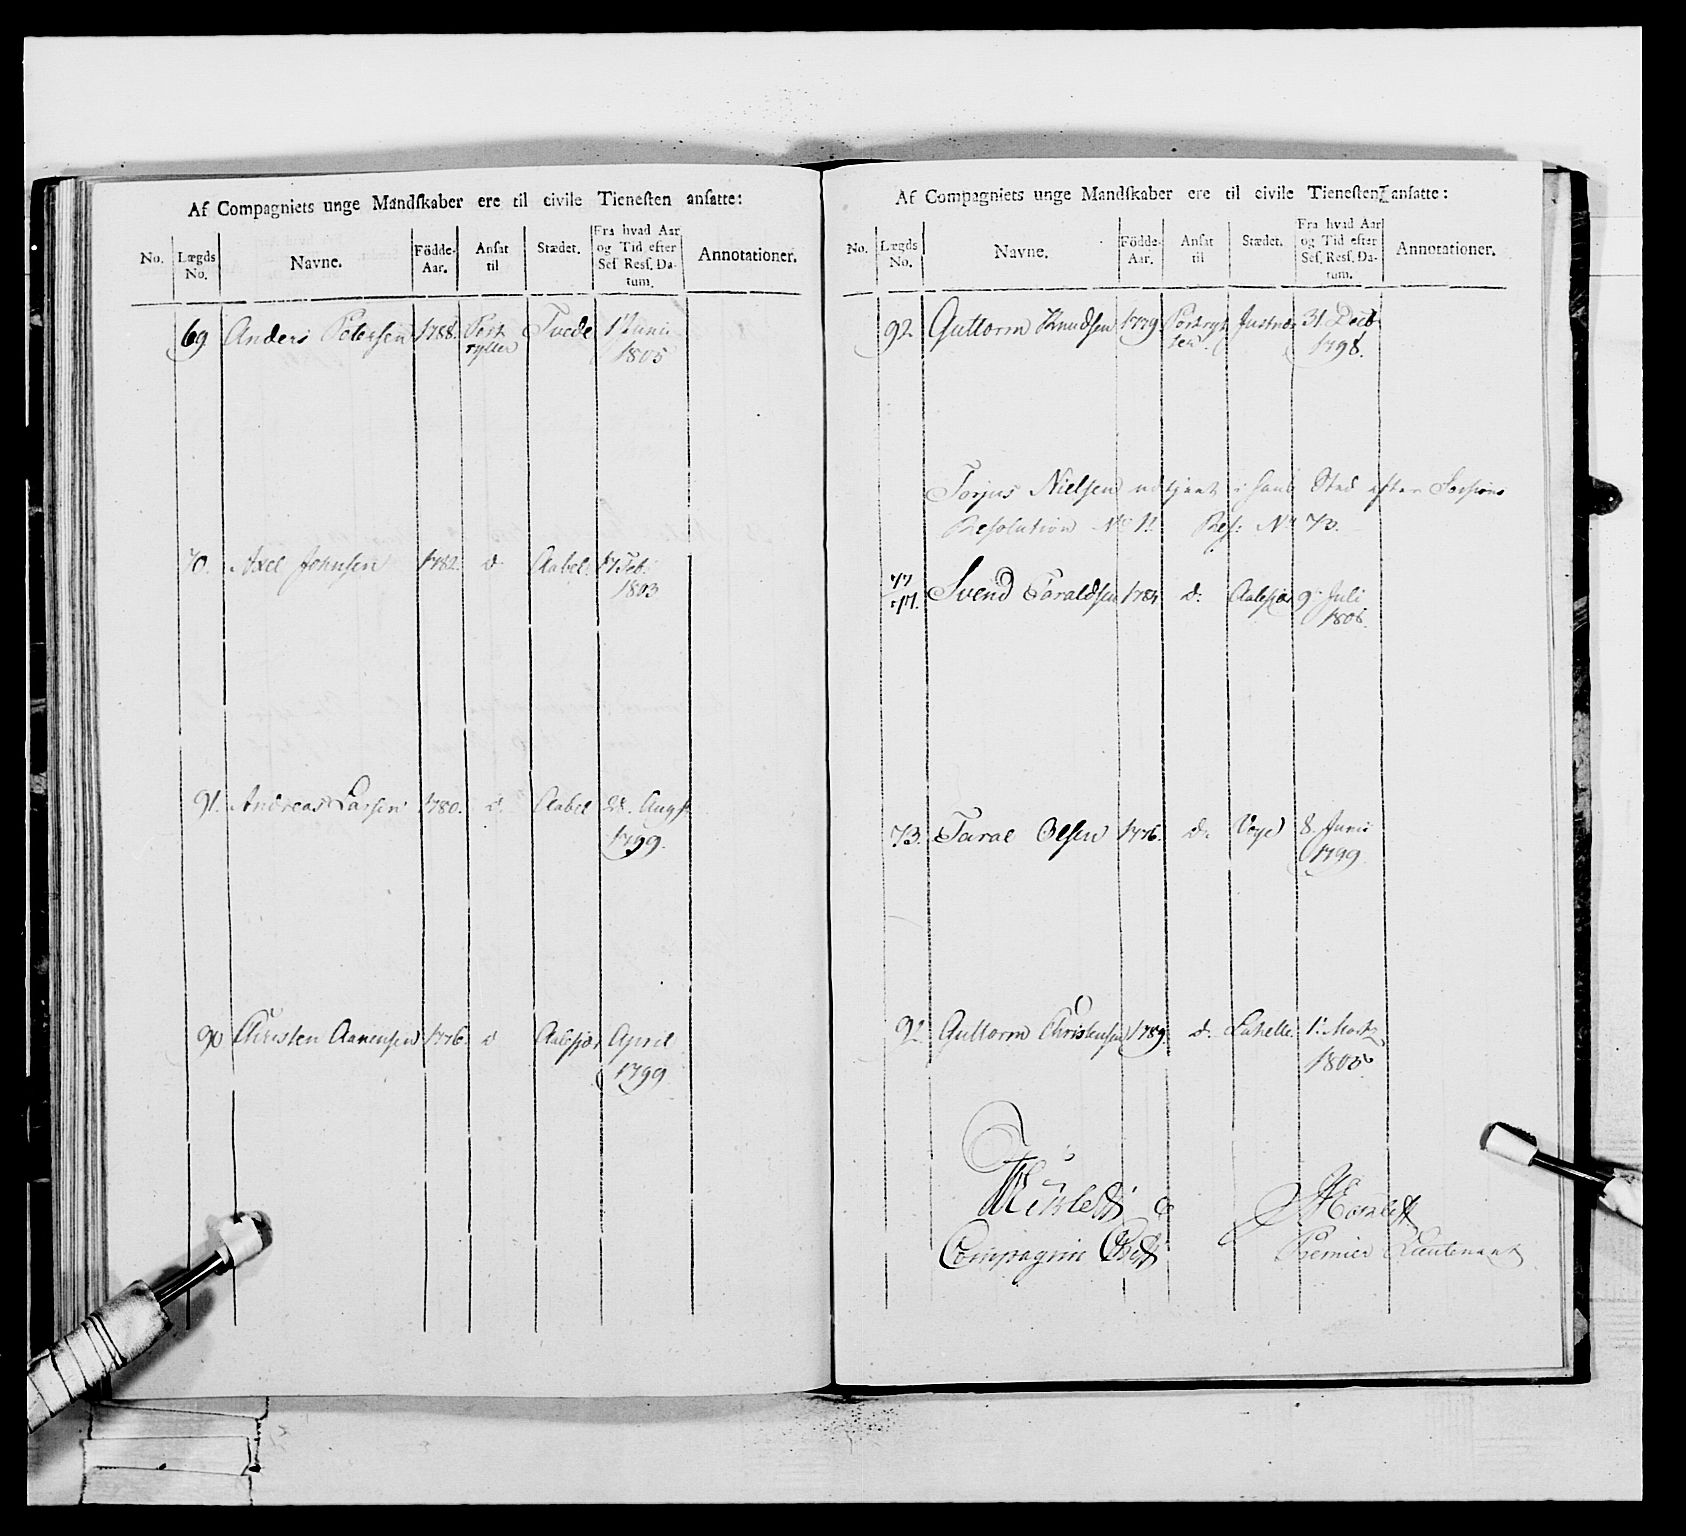 Af Compagniets unge Mandſkaber ere til civile Tieneſten anſatte:
No. Lægds No. Navne. Födde-Aar. Anſat til Stædet. Fra hvad Aar og Tid efter Seſ. Reſſ. Da-tum. Annotationer.
69 Anders Petersen 1788. Post rytter Tvede 1' Junii
1805
70. Axel Johnsen 1782. d Aabel. 17 Feb.
1803
91. Andreas Larsen 1780. d. Aabel 28. Augst
1799.
90 Christen Aanensen 1776. d Aalefjær April
1799
Af Compagniets unge Mandſkaber ere til civile Tieneſten anſatte:
No. Lægds No. Navne. Födde-Aar. Anſat til Stædet. Fra hvad Aar og Tid efter Seſ. Reſſ. Da-tum. Annotationer.
92 Guttorm Knudsen 1779 Justnæs 31. Decb
1798.
Torjus Nielsen udtjent i hans Sted efter Sessions
Resolution No 11. Res: No 73.
77 Svend Taraldsen 1784 d: Aalefjær 9' Juli
1808.
73. Taral Olsen 1776. d. Voye 8. Junii
1799
92. Guttorm Christensen 1789. d. 1' Martz
1805
Compagnie Chef
Premier Lieutenant